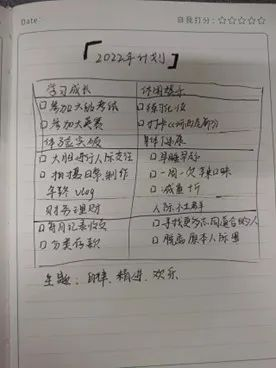 Date:
自我打分：☆☆☆☆☆
2022年计划
学习成长
休闲娱乐
□参加大的考试
□练习化妆
□参加大英赛
□打卡cc
体验突破
身体健康
□大胆进行人际交往
□早睡早起
□拍摄日常，制作
□一周一次
年终 vlog
□减重 斤
财务理财
人际
□每月记录收支
□寻找更多志同道合的人
□分类存款
□脱离原本人际圈
主题：自律、精进、欢乐